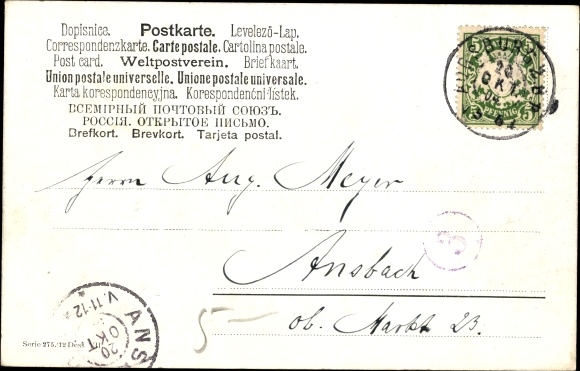 Dopisnice. Postkarte. Levelező-Lap.
Correspondenzkarte. Carte postale. Cartolina postale.
Post card. Weltpostverein. Briefkaart.
Union postale universelle. Unione postale universale.
Karta korespondencyjna. Korespondenční lístek.
ВСЕМІРНЫЙ ПОЧТОВЫЙ СОЮЗЪ.
РОССІЯ. ОТКРЫТОЕ ПИСЬМО.
Brefkort. Brevkort. Tarjeta postal.
Herrn Aug. Meyer
3
Ansbach
ob. Markt 23.
5-
V. 11-12
ANS
20
OKT
Serie 275/12